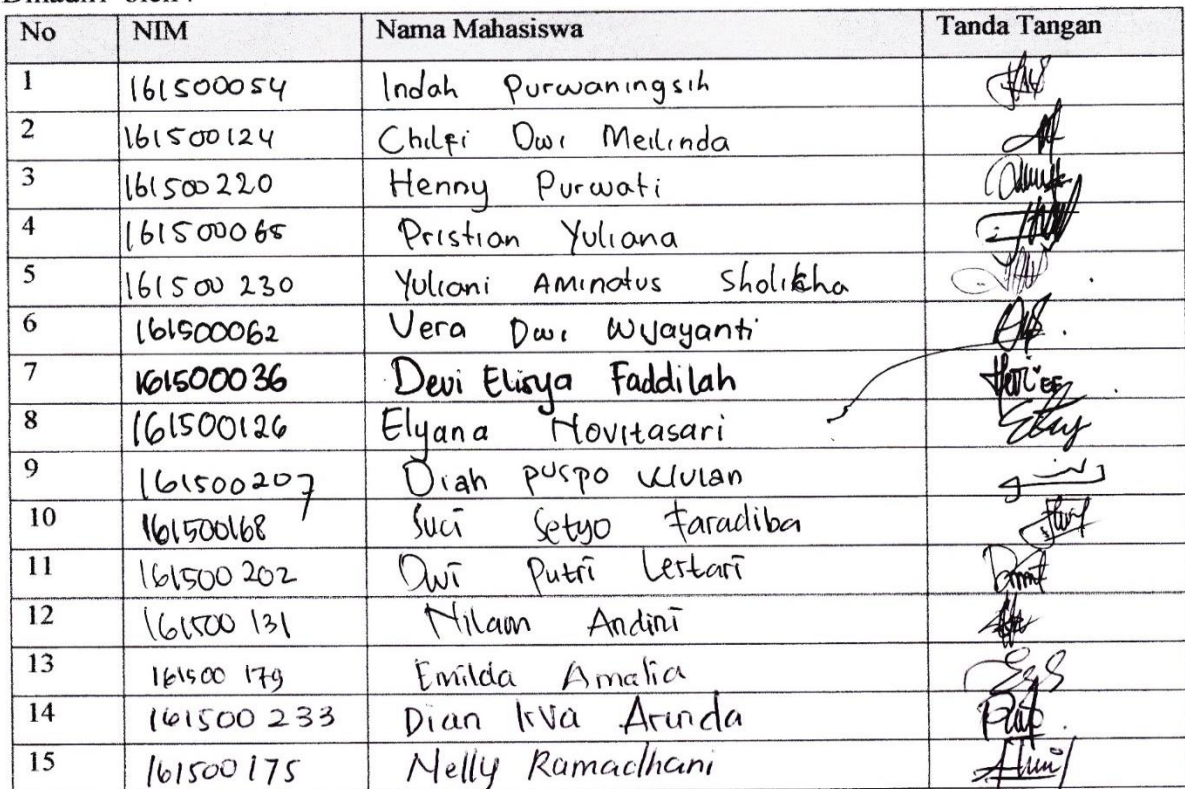 No NIM Nama Mahasiswa Tanda Tangan
1 161500054 Indah Purwaningsih
2 161500124 Chilfi Dwi Meilinda
3 161500220 Henny Purwati
4 161500065 Pristian Yuliana
5 161500230 Yuliani Aminatus Sholikha
6 161500062 Vera Dwi Wijayanti
7 161500036 Devi Elisya Faddilah
8 161500126 Elyana Novitasari
9 161500207 Diah puspo Wulan
10 161500168 Suci Setyo Faradiba
11 161500202 Dwi Putri Lestari
12 161500131 Nilam Andini
13 161500179 Emilda Amalia
14 161500233 Dian Irva Arinda
15 161500175 Nelly Ramadhani